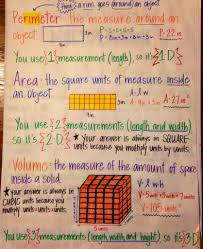 (think a rim goes around) an object
Perimeter: the measure around an object.
8m
3m
P=S+S+S+S
P=8m+3m+8m+3m
P=22m
You use {1} measurement (length), so it's {1-D}!
Area: the square units of measure inside an object.
3m
A=l·w
A=
A=
You use {2} measurements (length and width) so it's {2-D}
★ Your answer is always in SQUARE units because you multiply units by units.
Volume: the measure of the amount of space inside a solid.
★ your answer is always in CUBIC units because you multiply units × units × units.
V=l·w·h
V=5units
5 units
You use {3} measurements (length, width, and height) so it's {3-D}